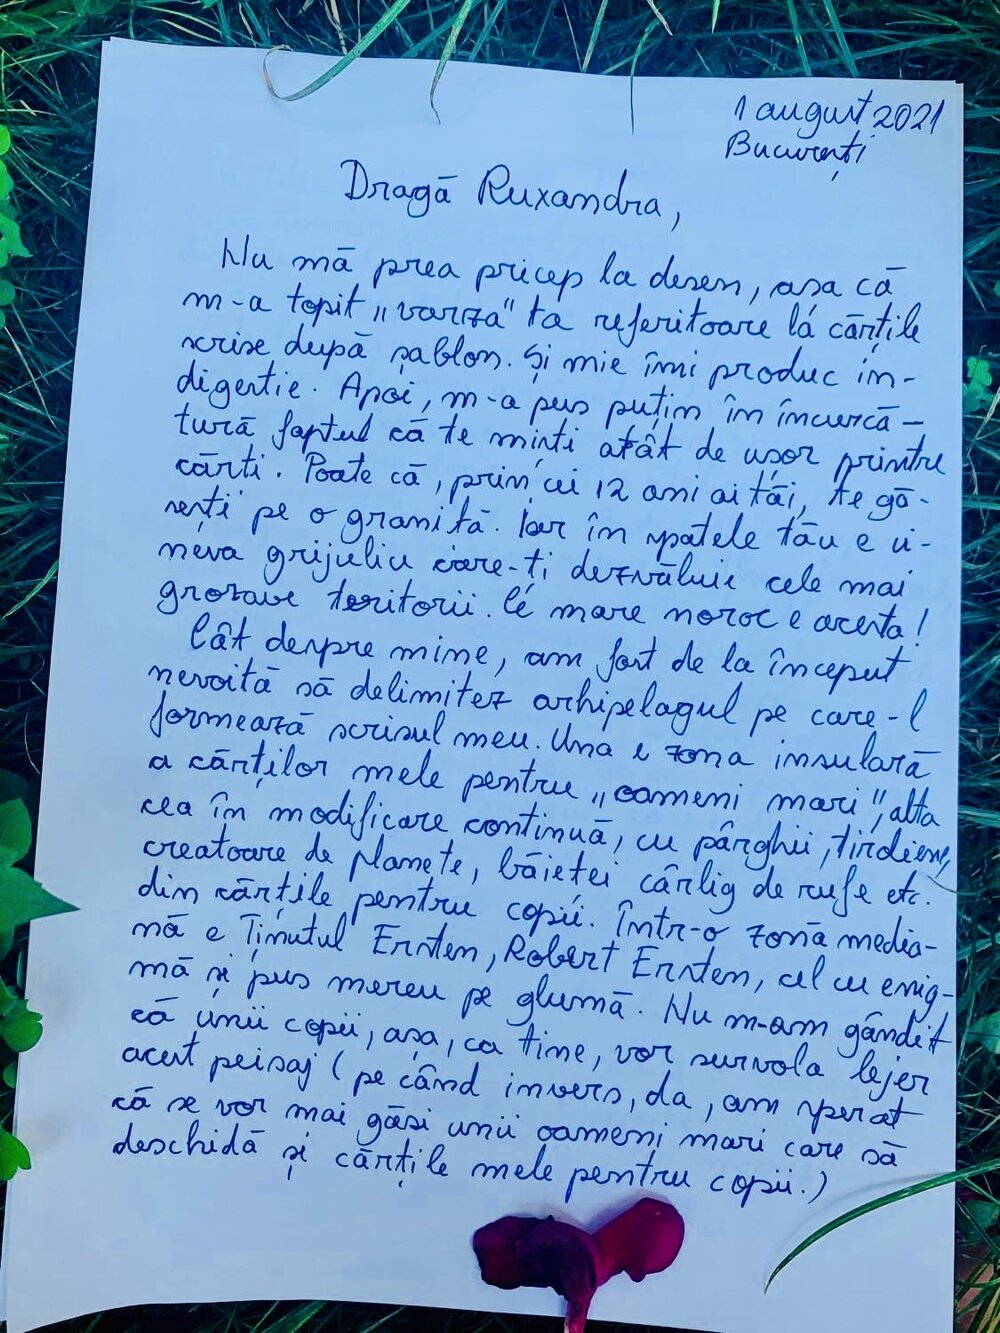 1 august 2021
București
Dragă Ruxandra,
Nu mă prea pricep la desen, așa că
m-a topit „varza" ta referitoare la cărțile
scrise după șablon. Și mie îmi produc in-
digestie. Apoi, m-a pus puțin în încurcă-
tură faptul că te miști atât de ușor printre
cărți. Poate că, prin cei 12 ani ai tăi, te gă-
sești pe o graniță. Iar în spatele tău e ci-
neva grijuliu care-ți dezvăluie cele mai
grozave teritorii. Ce mare noroc e acesta!
Cât despre mine, am fost de la început
nevoită să delimitez arhipelagul pe care-l
formează scrisul meu. Una e zona insulară
a cărților mele pentru „oameni mari", alta
cea în modificare continuă, cu pârghii, tirdiene,
creatoare de planete, băieței cârlig de rufe etc.
din cărțile pentru copii. Într-o zonă media-
nă e Ținutul Ernsten, Robert Ernsten, cel cu enig-
mă și pus mereu pe glumă. Nu m-am gândit
că unii copii, așa, ca tine, vor survola lejer
acest peisaj (pe când invers, da, am sperat
că se vor mai găsi unii oameni mari care să
deschidă și cărțile mele pentru copii.)